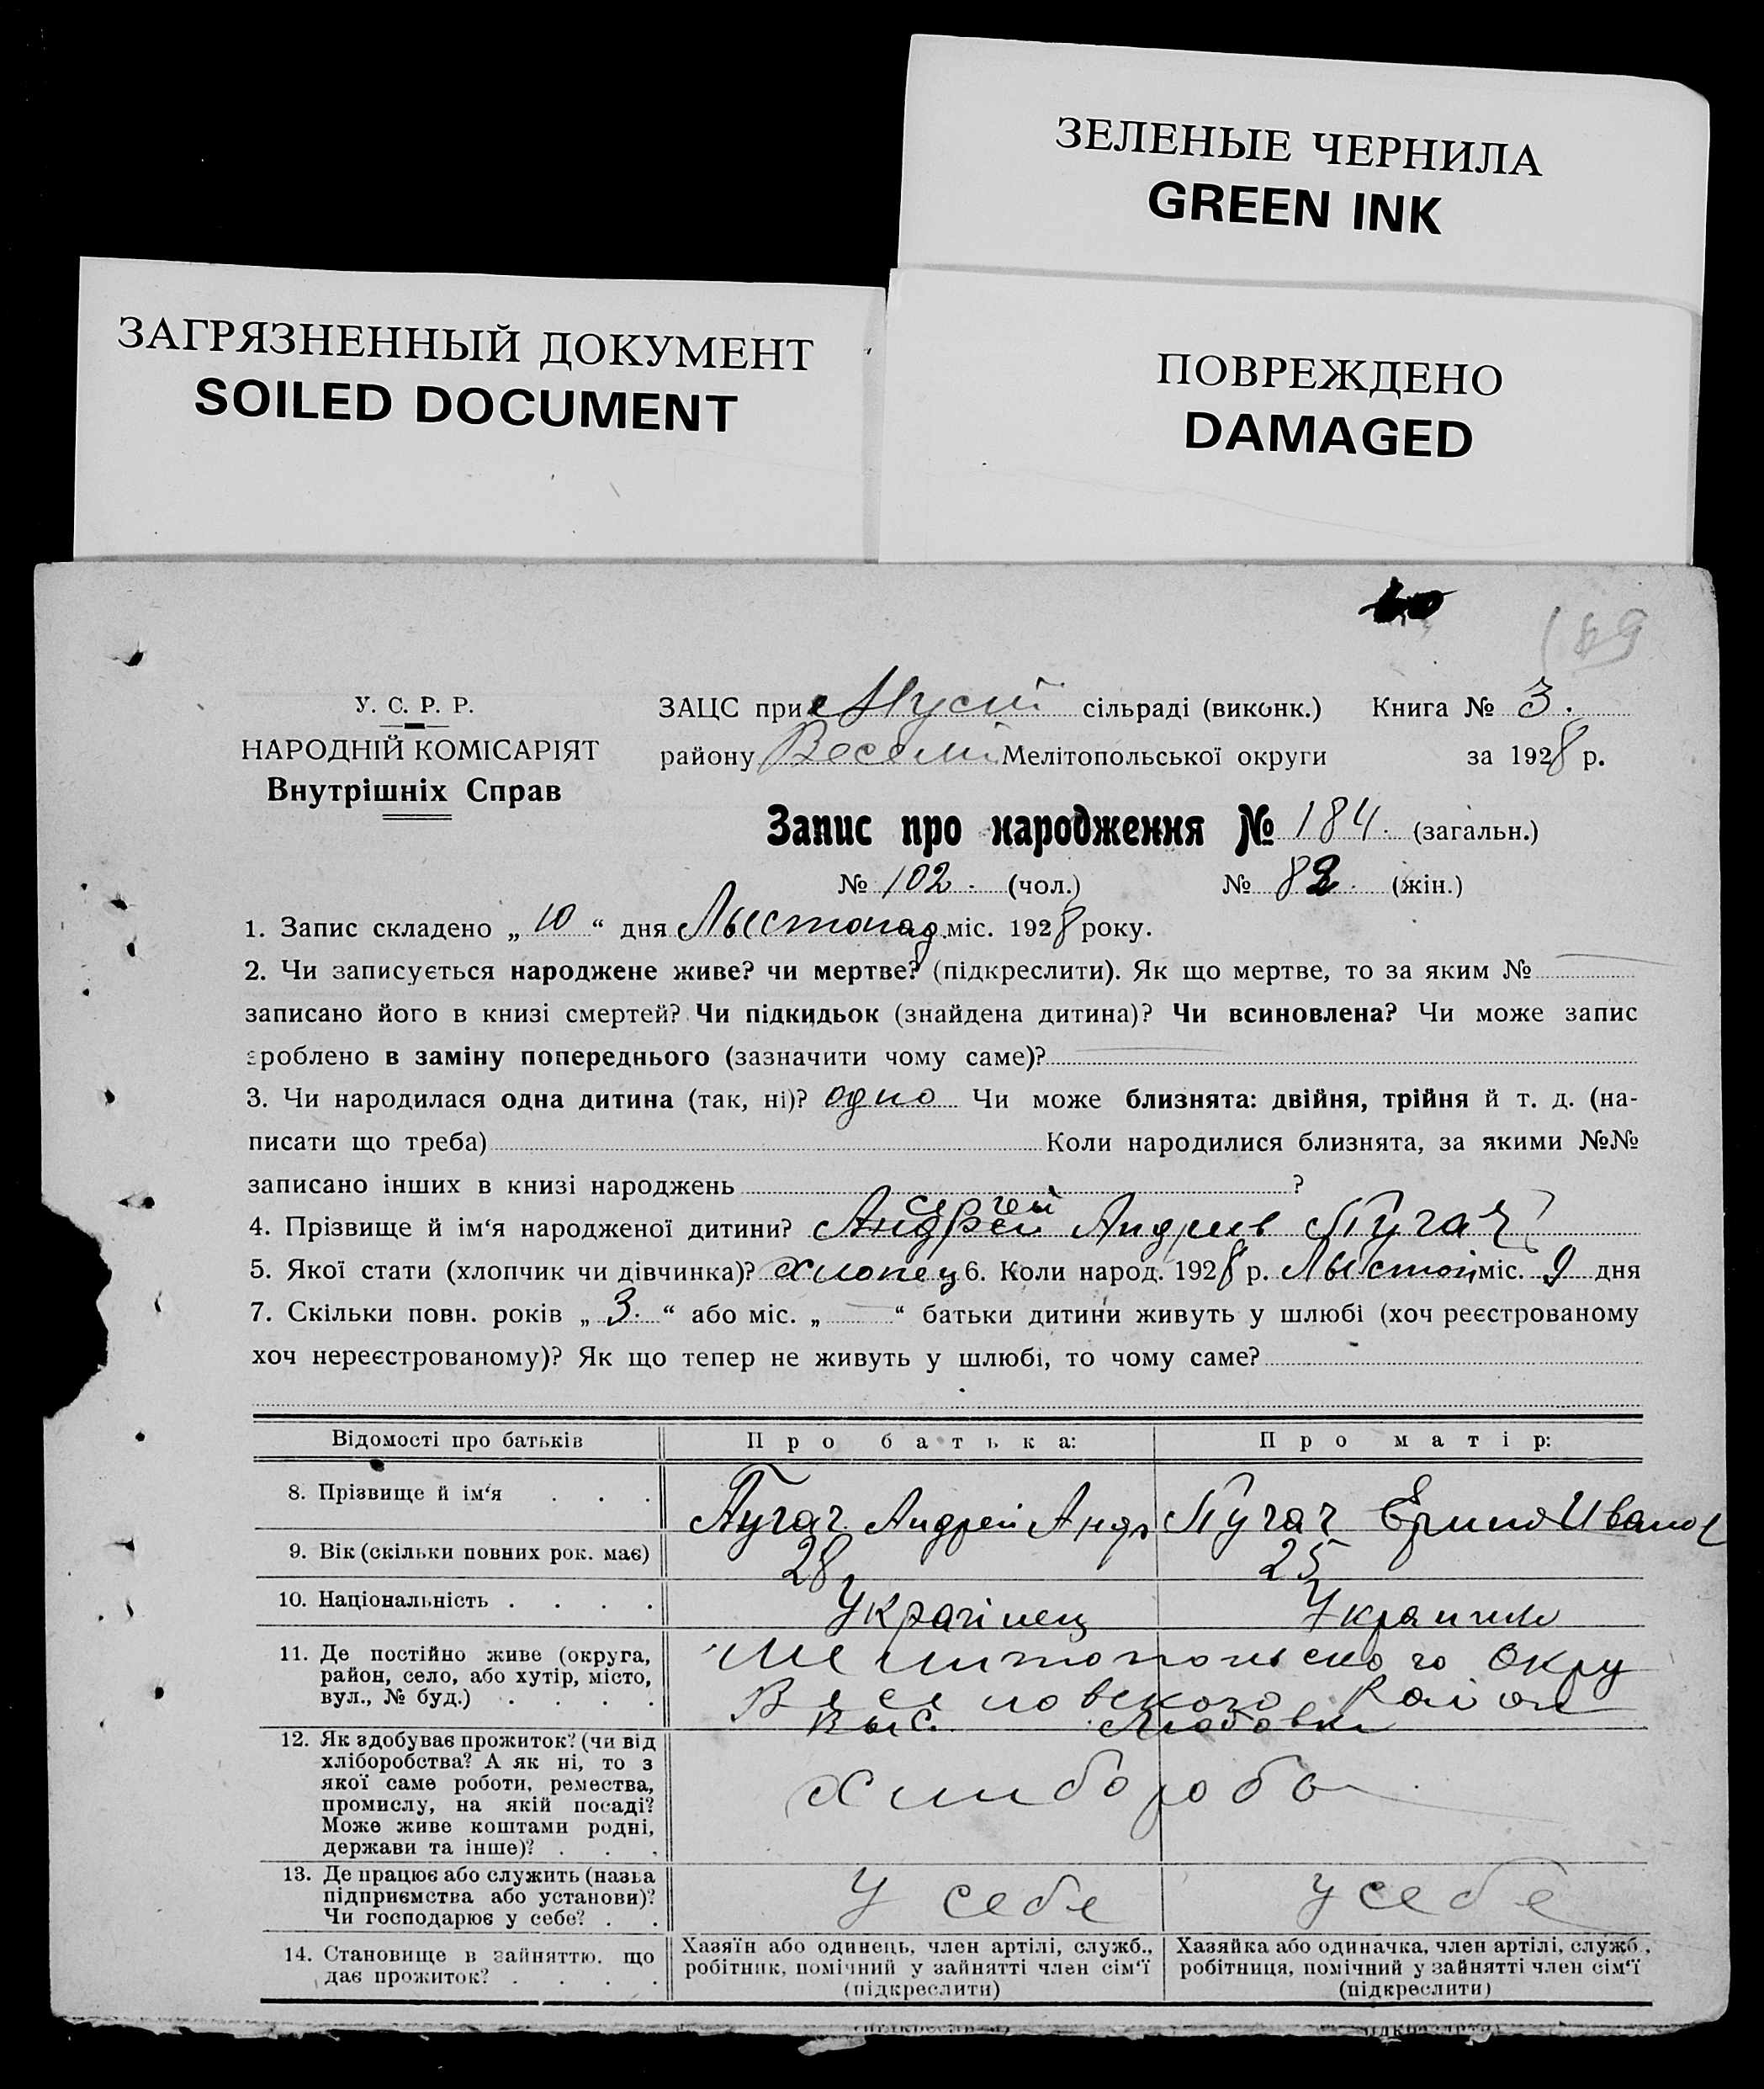 ЗЕЛЕНЫЕ ЧЕРНИЛА
GREEN INK
ЗАГРЯЗНЕННЫЙ ДОКУМЕНТ
SOILED DOCUMENT
ПОВРЕЖДЕНО
DAMAGED
У. С. Р. Р.
НАРОДНІЙ КОМІСАРІЯТ
Внутрішніх Справ
ЗАЦС при сільраді (виконк.) Книга № 3.
району Весели Мелітопольської округи за 1928 р.
Запис про народження № 184. (загальн.)
№ 102. (чол.) № 82. (жін.)
1. Запис складено „ 10 “ дня Лыстопад міс. 1928 року.
2. Чи записується народжене живе? чи мертве? (підкреслити). Як що мертве, то за яким №
записано його в книзі смертей? Чи підкидьок (знайдена дитина)? Чи всиновлена? Чи може запис
зроблено в заміну попереднього (зазначити чому саме)?
3. Чи народилася одна дитина (так, ні)? одно Чи може близнята: двійня, трійня й т. д. (на-
писати що треба) Коли народилися близнята, за якими №№
записано інших в книзі народжень ?
сергей
4. Прізвище й ім‘я народженої дитини? Андрей Андрив Пугач
5. Якої стати (хлопчик чи дівчинка)? Хлопец 6. Коли народ. 1928 р. Лыстоп міс. 9 дня
7. Скільки повн. років „ 3. “ або міс. „ — “ батьки дитини живуть у шлюбі (хоч реєстрованому
хоч нереєстрованому)? Як що тепер не живуть у шлюбі, то чому саме?
Відомості про батьків Про батька: Про матір:
8. Прізвище й ім‘я . . . Пугач Андрей Андр Пугач Иванов
9. Вік (скільки повних рок. має) 28 25
10. Національність . . . . Українец Украинк
11. Де постійно живе (округа,
район, село, або хутір, місто,
вул., № буд.) . . . .
Мелитопольского Окру
Веселовского Район
Выс. Любовка
12. Як здобуває прожиток? (чи від
хліборобства? А як ні, то з
якої саме роботи, ремества,
промислу, на якій посаді?
Може живе коштами родні,
держави та інше)? . . .
Хлибороб
13. Де працює або служить (назва
підприємства або установи)?
Чи господарює у себе? . .
У себе у себе
14. Становище в зайняттю, що
дає прожиток? . . . .
Хазяїн або одинець, член артілі, служб.,
робітник, помічний у зайнятті член сім‘ї
(підкреслити)
Хазяйка або одиначка, член артілі, служб.,
робітниця, помічний у зайнятті член сім‘ї
(підкреслити)